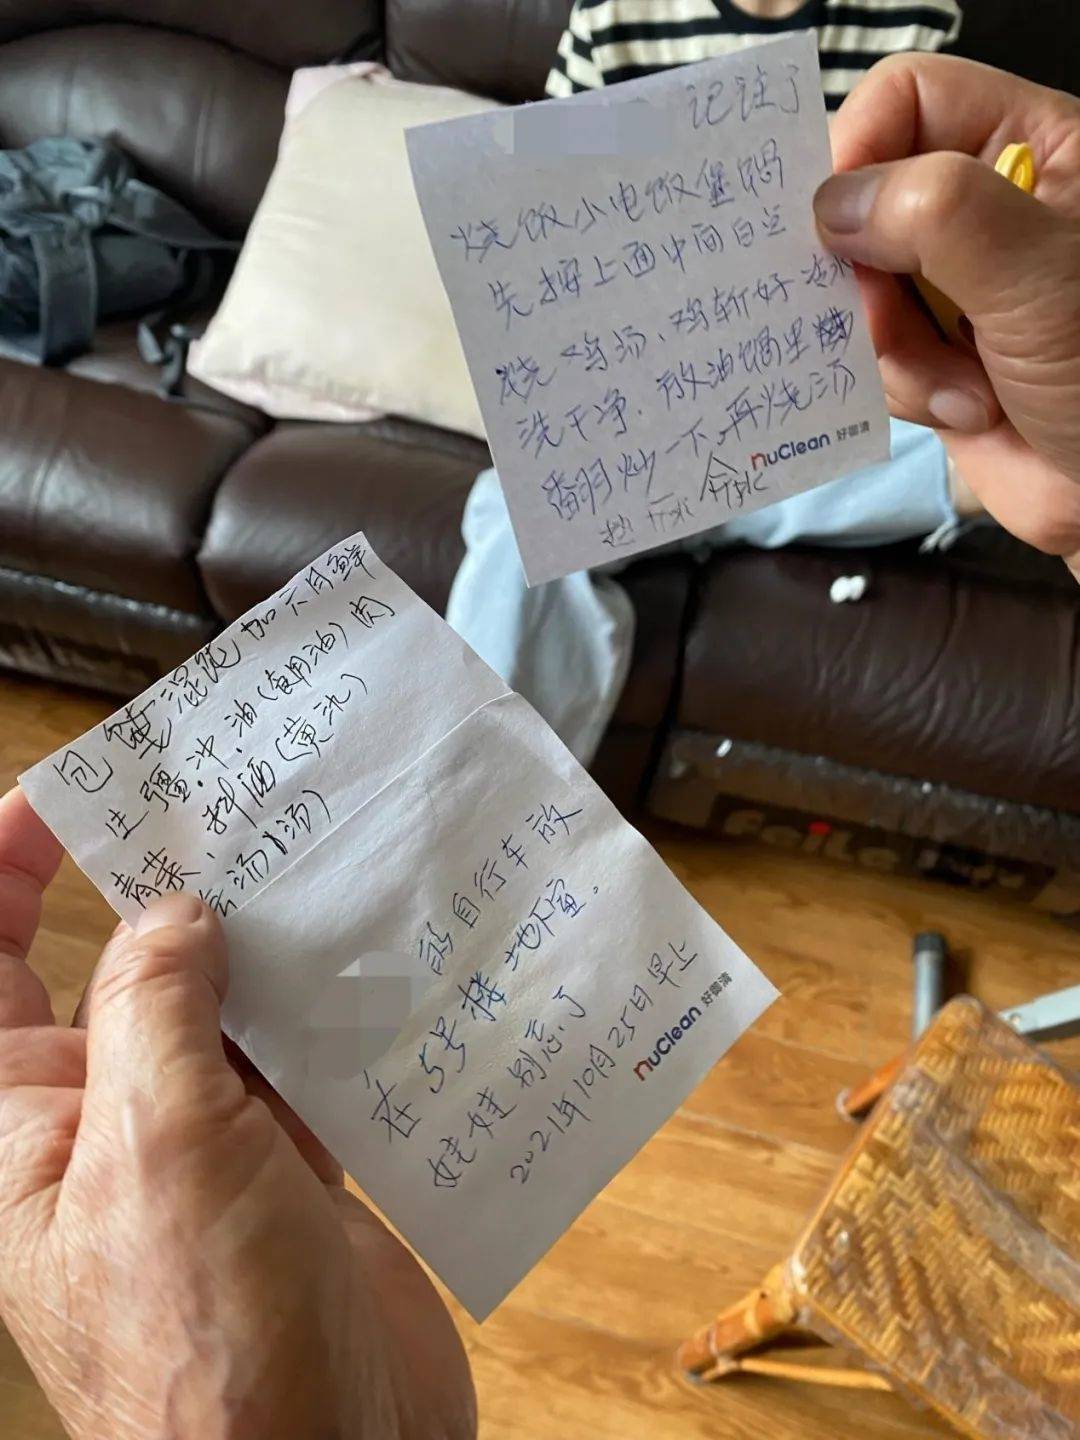 记注了
烧饭小电饭堡锅
先按上面中间白豆
烧鸡汤、鸡斩好冷水
洗干净.放油锅里
翻炒一下,再烧汤
nuClean 好御清
包 混饨 加六月鲜
生疆.冲.油(食用油)肉
青菜、料酒(黄氿)
汤)
的自行车放
在5号楼地下室。
娃娃别忘了
2021年10月25日早上
nuClean 好御清